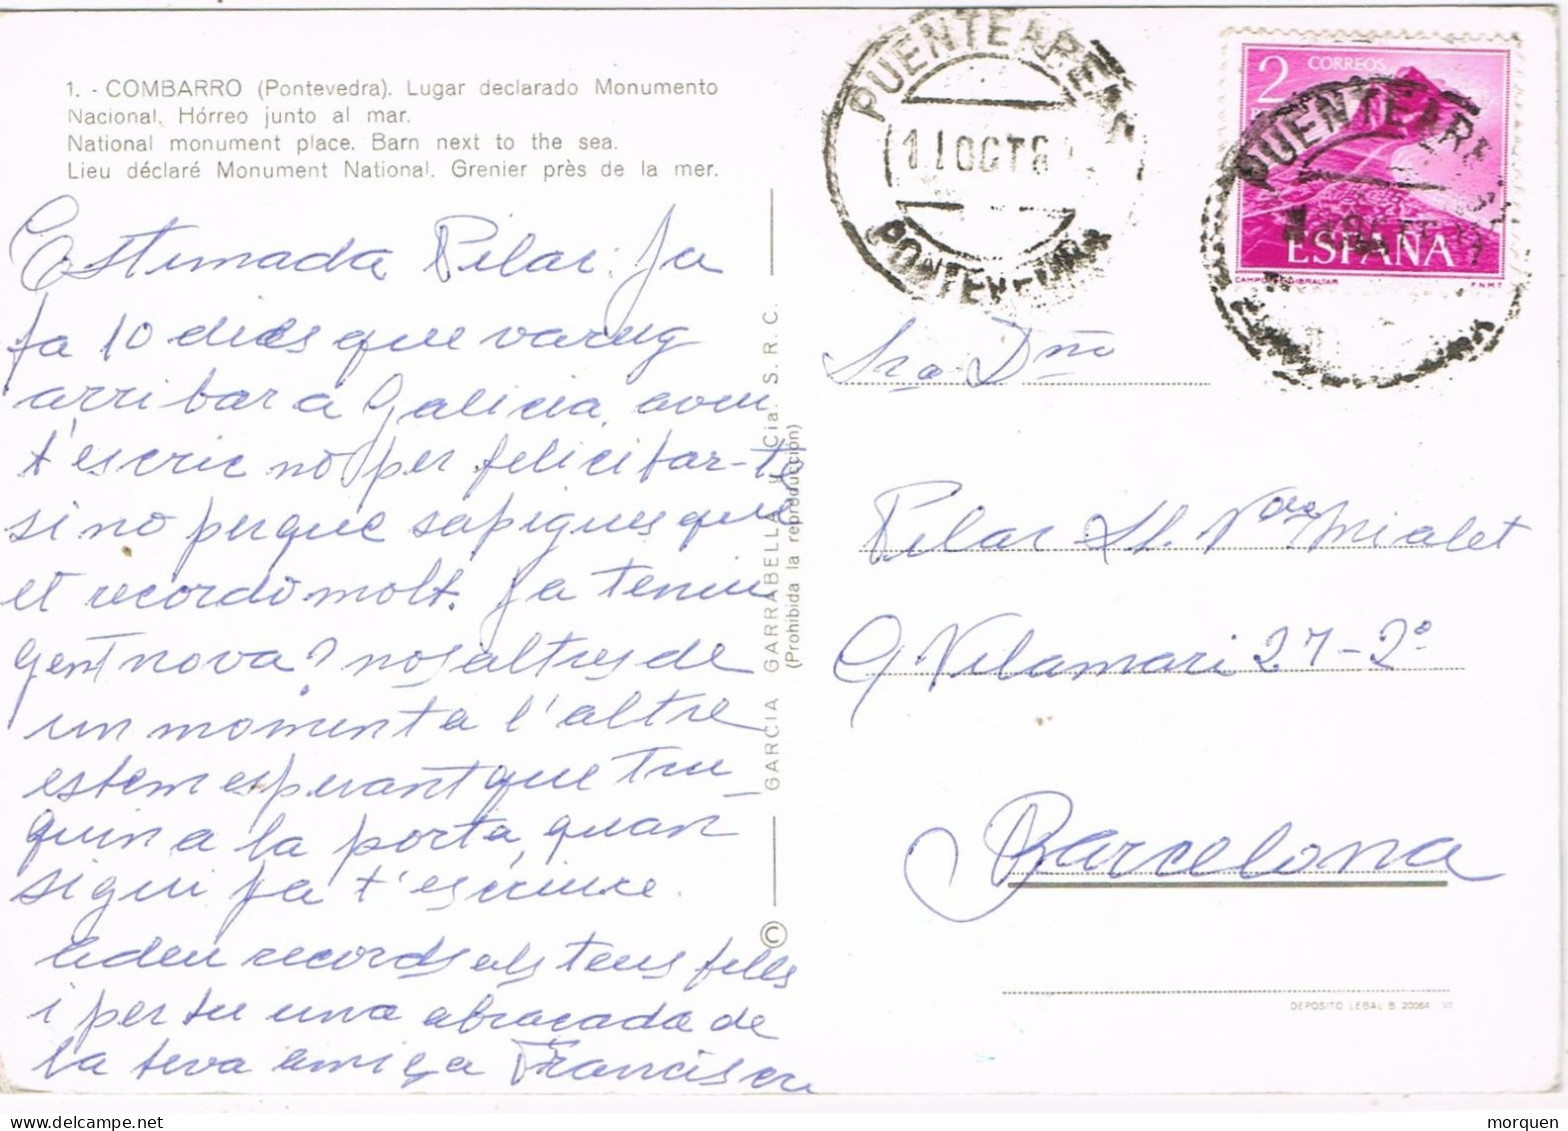 1. - COMBARRO (Pontevedra). Lugar declarado Monumento
Nacional. Hórreo junto al mar.
National monument place. Barn next to the sea.
Lieu déclaré Monument National. Grenier près de la mer.
Estimada Pilar. Ja
fa 10 dies que vareig
arribar a Galicia, avui
t'escric no per felicitar-te
sino perque sapigues que
et recordo molt. Ja teniu
gent nova? nosaltres de
un moment a l'altre
estem esperant que tru-
quin a la porta, quan
sigui ja t'escriure.
Adeu records als teus fills
i per tu una abraçada de
la teva amiga Francisca
GARCIA GARRABELLA Y Cia. S. R. C.
(Prohibida la reproducción)
©
PUENTEAREAS
11 OCT 6
PONTEVEDRA
2
CORREOS
ESPAÑA
CAMPO DE GIBRALTAR
F.N.M.T
PUENTEAREAS
Sra Dña
Pilar Ll. Vda Mialet
C/ Vilamari 27-2º
Barcelona
DEPOSITO LEGAL B. 20064
morquen